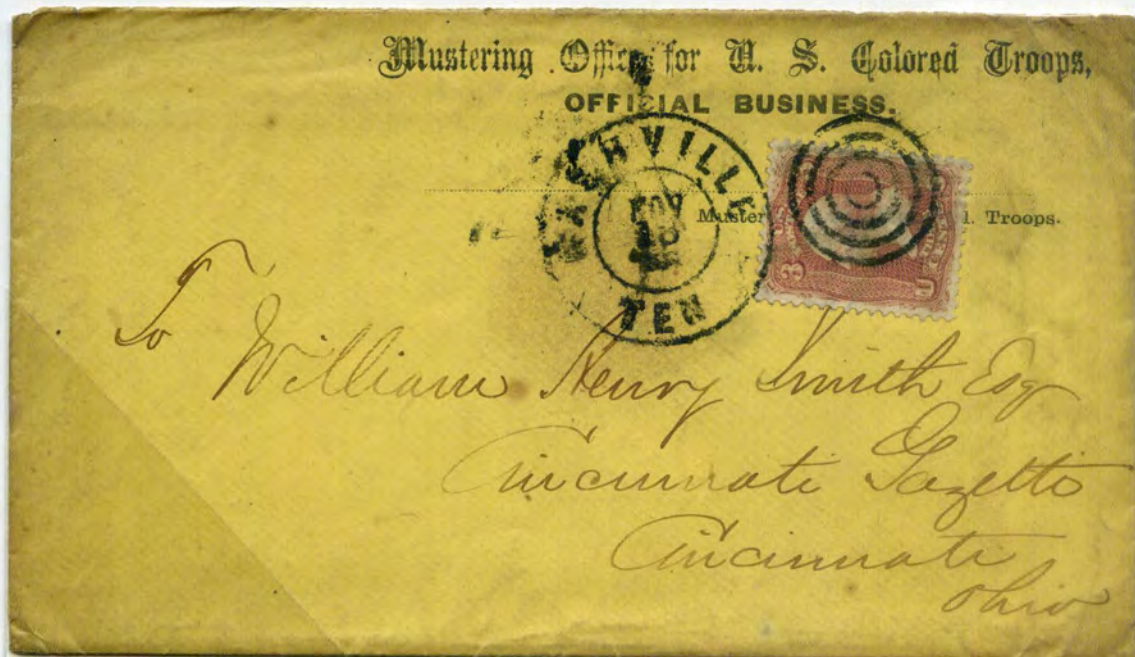 Mustering Office for U. S. Colored Troops,
OFFICIAL BUSINESS.
NASHVILLE
NOV
18
TEN
Muster l. Troops.
3 U
To
William Henry Smith Esq
Cincinnati Gazette
Cincinnati
Ohio